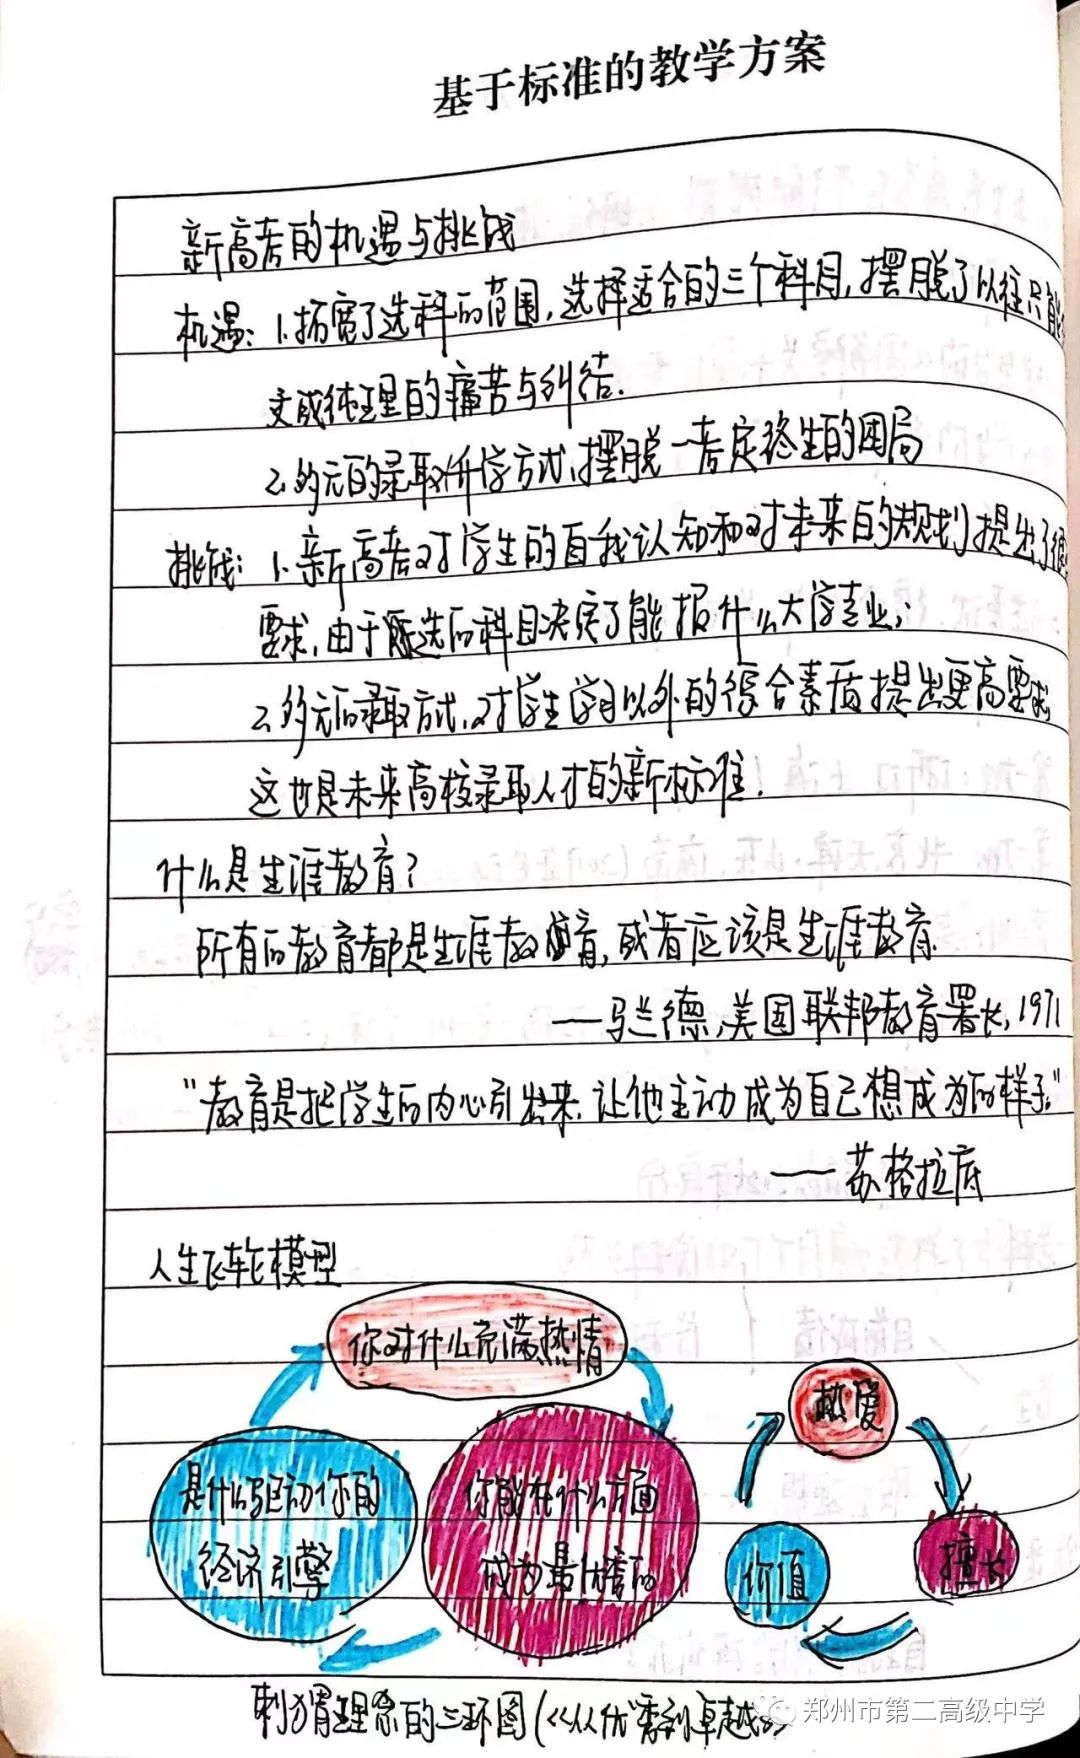 基于标准的教学方案
新高考的机遇与挑战
机遇：1.拓宽了选科的范围，选择适合的三个科目，摆脱了以往只能
文或纯理的痛苦与纠结.
2.多元的录取升学方式，摆脱一考定终生的困局
挑战：1.新高考对学生的自我认知和对未来的规划提出了很
要求，由于所选的科目决定了能报什么大学专业；
2.多元的录取方式，对学生学习以外的综合素质提出更高要求，
这也是未来高校录取人才的新标准！
什么是生涯教育？
所有的教育都是生涯教育，或者应该是生涯教育.
——马兰德，美国联邦教育署长，1971
“教育是把学生的内心引出来，让他主动成为自己想成为的样子”
——苏格拉底
人生飞轮模型
你对什么充满热情
是什么驱动你的
经济引擎
你能在什么方面
成为最优秀的
热爱
价值
擅长
刺猬理念的三环图（《从优秀到卓越》
郑州市第二高级中学